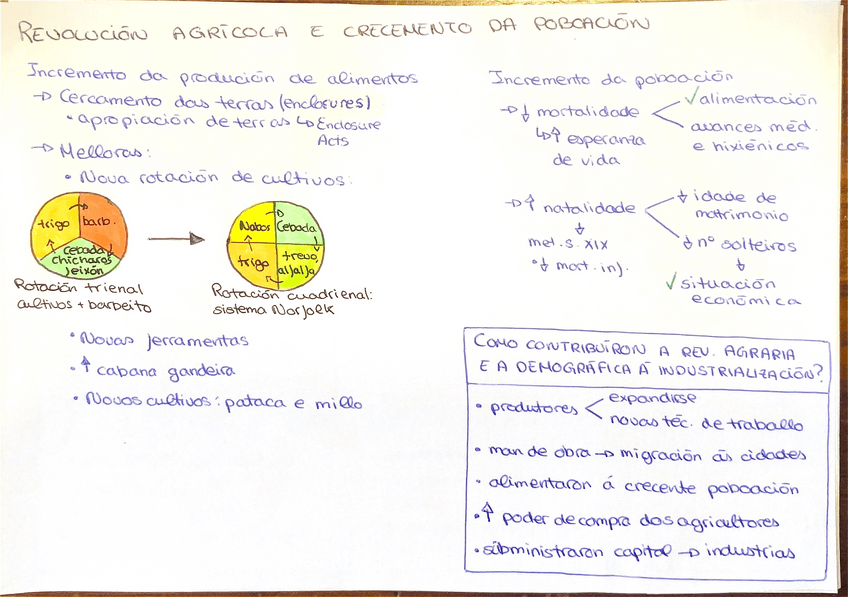 REVOLUCIÓN AGRÍCOLA E CRECEMENTO DA POBOACIÓN
Incremento da produción de alimentos
→ Cercamento das terras (enclosures)
• apropiación de terras ↳ Enclosure
Acts
→ Melloras:
• Nova rotación de cultivos:
trigo
barb.
Cebada
chícharos
feixón
Rotación trienal
cultivos + barbeito
Nabos
Cebada
trigo
trevo,
alfalfa
Rotación cuadrienal:
sistema Norfolk
• Novas ferramentas
• ↑ cabana gandeira
• Novos cultivos: pataca e millo
Incremento da poboación
→ ↓ mortalidade
✓ alimentación
avances méd.
e hixiénicos
↳ ↑ esperanza
de vida
→ ↑ natalidade
↓ idade de
matrimonio
↓ nº solteiros
↓
met. s. XIX
• ↓ mort. inf.
↓
✓ situación
económica
COMO CONTRIBUÍRON A REV. AGRARIA
E A DEMOGRÁFICA Á INDUSTRIALIZACIÓN?
• produtores < expandirse
novas téc. de traballo
• man de obra → migración ás cidades
• alimentaron á crecente poboación
• ↑ poder de compra dos agricultores
• subministraron capital → industrias